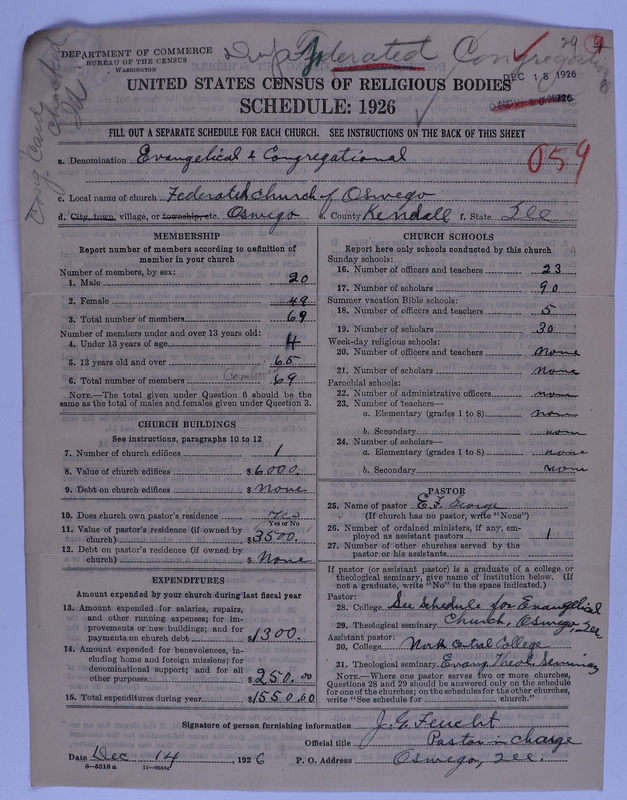 29 9
DEPARTMENT OF COMMERCE
BUREAU OF THE CENSUS
WASHINGTON
Dup Federated Congregational
DEC 18 1926
Cong. Card checked
UNITED STATES CENSUS OF RELIGIOUS BODIES
SCHEDULE: 1926
FILL OUT A SEPARATE SCHEDULE FOR EACH CHURCH. SEE INSTRUCTIONS ON THE BACK OF THIS SHEET
a. Denomination Evangelical & Congregational
059
c. Local name of church Federated Church of Oswego
d. City, town, village, or township, etc. Oswego e. County Kendall f. State Ill
MEMBERSHIP
Report number of members according to definition of
member in your church
Number of members, by sex:
1. Male 20
2. Female 49
3. Total number of members 69
Number of members under and over 13 years old:
4. Under 13 years of age 4
5. 13 years old and over 65
6. Total number of members 69
NOTE.—The total given under Question 6 should be the
same as the total of males and females given under Question 3.
CHURCH BUILDINGS
See instructions, paragraphs 10 to 12
7. Number of church edifices 1
8. Value of church edifices $ 6000.
9. Debt on church edifices $ None
10. Does church own pastor's residence Yes
Yes or No
11. Value of pastor's residence (if owned by
church) $ 3500.
12. Debt on pastor's residence (if owned by
church) $ None
EXPENDITURES
Amount expended by your church during last fiscal year
13. Amount expended for salaries, repairs,
and other running expenses; for im-
provements or new buildings; and for
payments on church debt $ 1300.
14. Amount expended for benevolences, in-
cluding home and foreign missions; for
denominational support; and for all
other purposes $ 250.00
15. Total expenditures during year $ 1550.00
CHURCH SCHOOLS
Report here only schools conducted by this church
Sunday schools:
16. Number of officers and teachers 23
17. Number of scholars 90
Summer vacation Bible schools:
18. Number of officers and teachers 5
19. Number of scholars 30
Week-day religious schools:
20. Number of officers and teachers none
21. Number of scholars none
Parochial schools:
22. Number of administrative officers none
23. Number of teachers—
a. Elementary (grades 1 to 8) none
b. Secondary none
24. Number of scholars—
a. Elementary (grades 1 to 8) none
b. Secondary none
PASTOR
25. Name of pastor E. F. George
(If church has no pastor, write "None")
26. Number of ordained ministers, if any, em-
ployed as assistant pastors 1
27. Number of other churches served by the
pastor or his assistants
If pastor (or assistant pastor) is a graduate of a college or
theological seminary, give name of institution below. (If
not a graduate, write "No" in the space indicated.)
Pastor:
28. College See Schedule for Evangelical
29. Theological seminary Church, Oswego, Ill
Assistant pastor:
30. College North Central College
31. Theological seminary Evang. Theol. Seminary
NOTE.—Where one pastor serves two or more churches,
Questions 28 and 29 should be answered only on the schedule
for one of the churches; on the schedules for the other churches,
write "See schedule for church."
Signature of person furnishing information J. G. Feucht
Official title Pastor in charge
Date Dec 14, 1926 P. O. Address Oswego, Ill.
8—5518 a